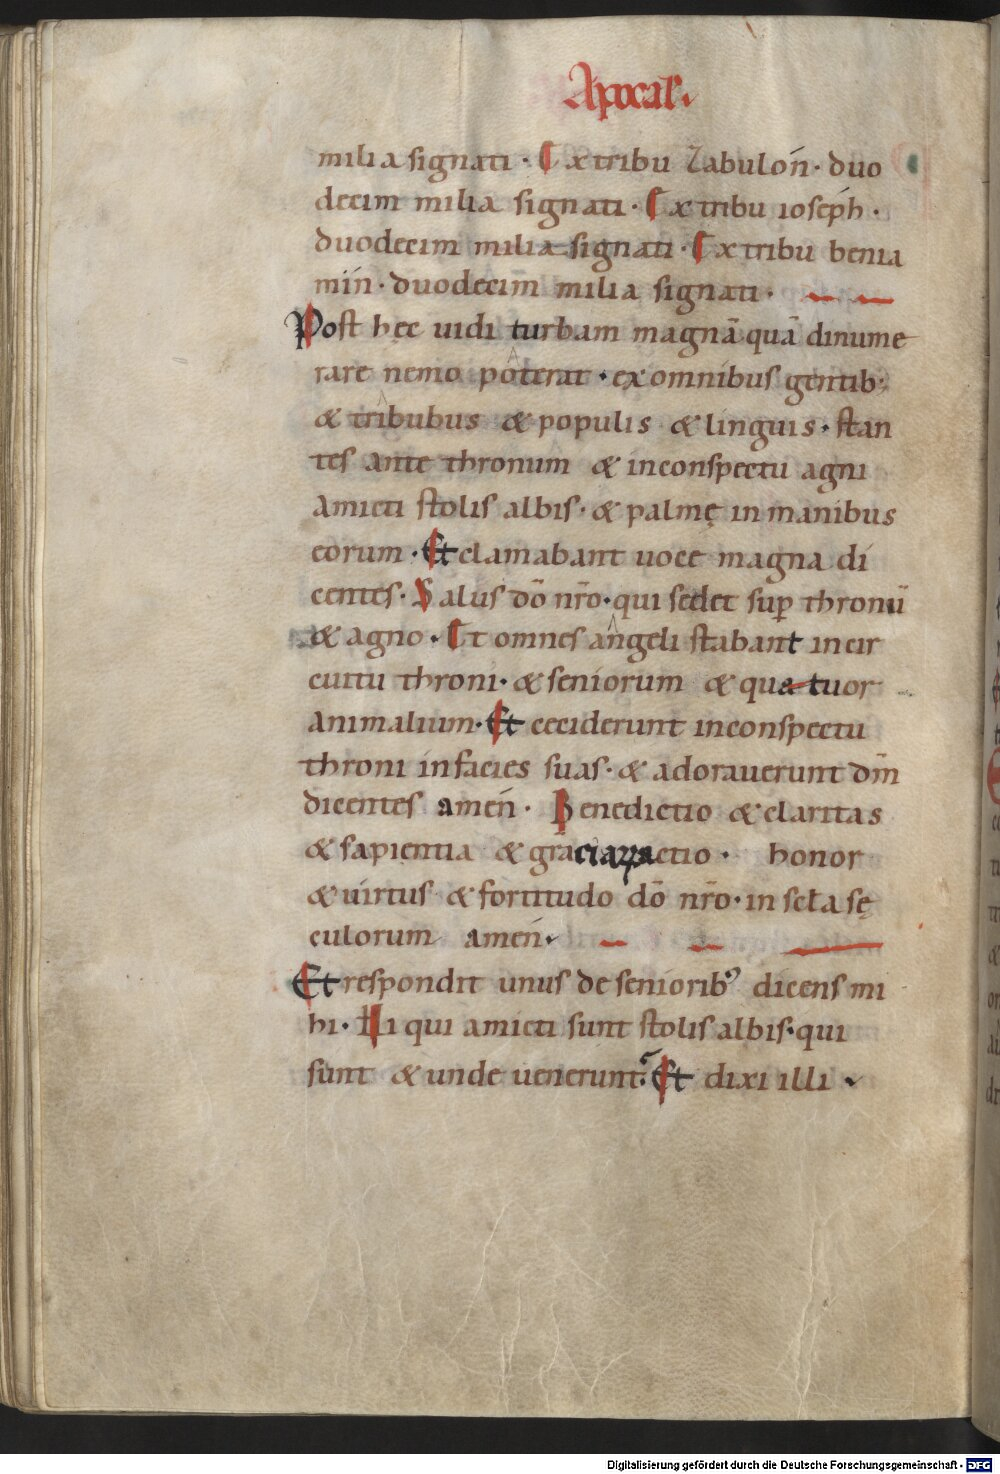 Apocal.
milia signati · Ex tribu Zabulon̄ · duo
decim milia signati · Ex tribu ioseph̄ ·
duodecim milia signati · Ex tribu benia
min̄ · duodecim milia signati ·
Post hęc uidi turbam magnā quā dinume
rare nemo poterat · ex omnibus gentib;
& tribubus & populis & linguis · stan
tes ante thronum & in conspectu agni
amicti stolis albis · & palmę in manibus
eorum · Et clamabant uoce magna di
centes · Salus dō nr̄o · qui sedet sup̄ thronū
& agno · Et omnes angeli stabant in cir
cuitu throni · & seniorum & quatuor
animalium · Et ceciderunt in conspectu
throni in facies suas · & adorauerunt dm̄
dicentes amen̄ · Benedictio & claritas
& sapientia & gra ciarꝫ actio · honor
& uirtus & fortitudo dō nr̄o · in scła sę
culorum amen̄ ·
Et respondit unus de seniorib᾿ dicens mi
hi · Hi qui amicti sunt stolis albis · qui
sunt & unde uenerunt? Et dixi illi ·
Digitalisierung gefördert durch die Deutsche Forschungsgemeinschaft - DFG